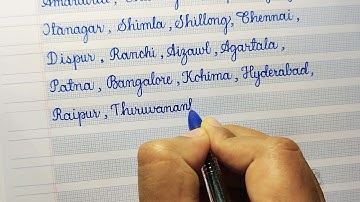 Itanagar, Shimla, Shillong, Chennai,
Dispur, Ranchi, Aizawl, Agartala,
Patna, Bangalore, Kohima, Hyderabad,
Raipur, Thiruvanant